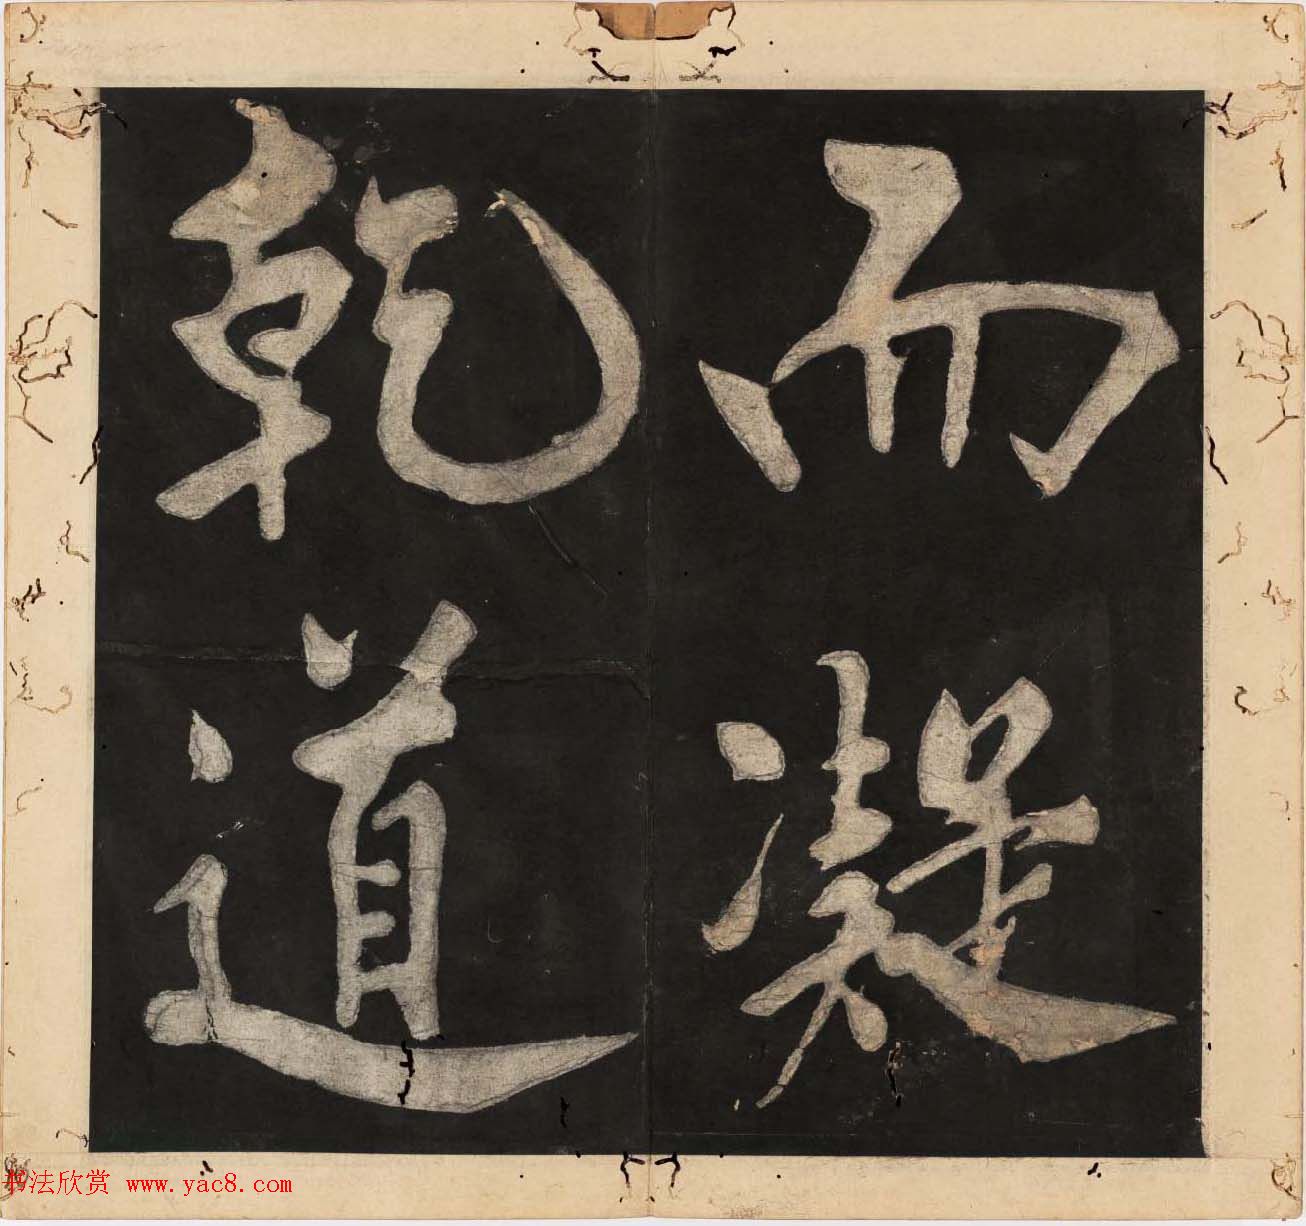 而凝
乾道
书法欣赏 www.yac8.com